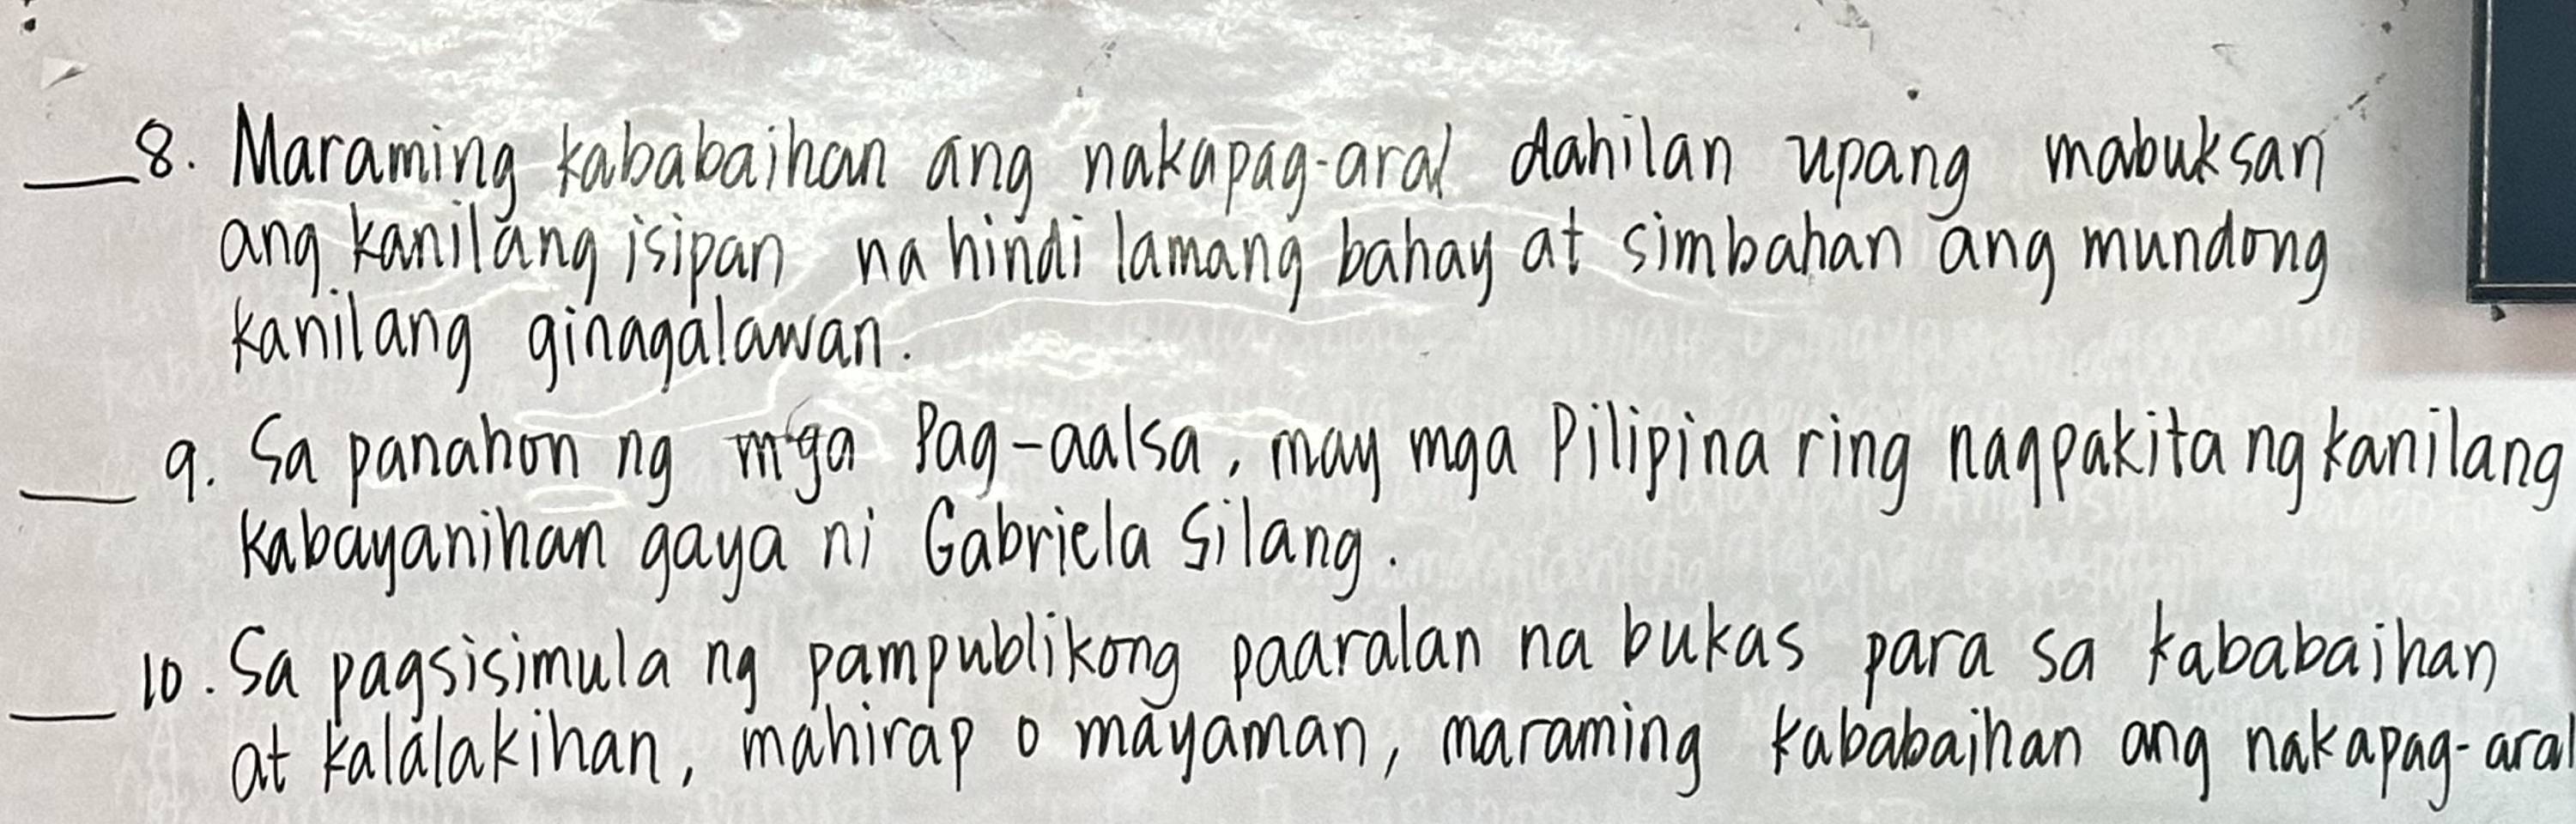 ___8. Maraming kababaihan ang nakapag-aral dahilan upang mabuksan
ang kanilang isipan na hindi lamang bahay at simbahan ang mundong
kanilang ginagalawan.
___ 9. Sa panahon ng mga Pag-aalsa, may mga Pilipina ring nagpakita ng kanilang
kabayanihan gaya ni Gabriela Silang.
___ 10. Sa pagsisimula ng pampublikong paaralan na bukas para sa kababaihan
at kalalakihan, mahirap o mayaman, maraming kababaihan ang nakapag-aral